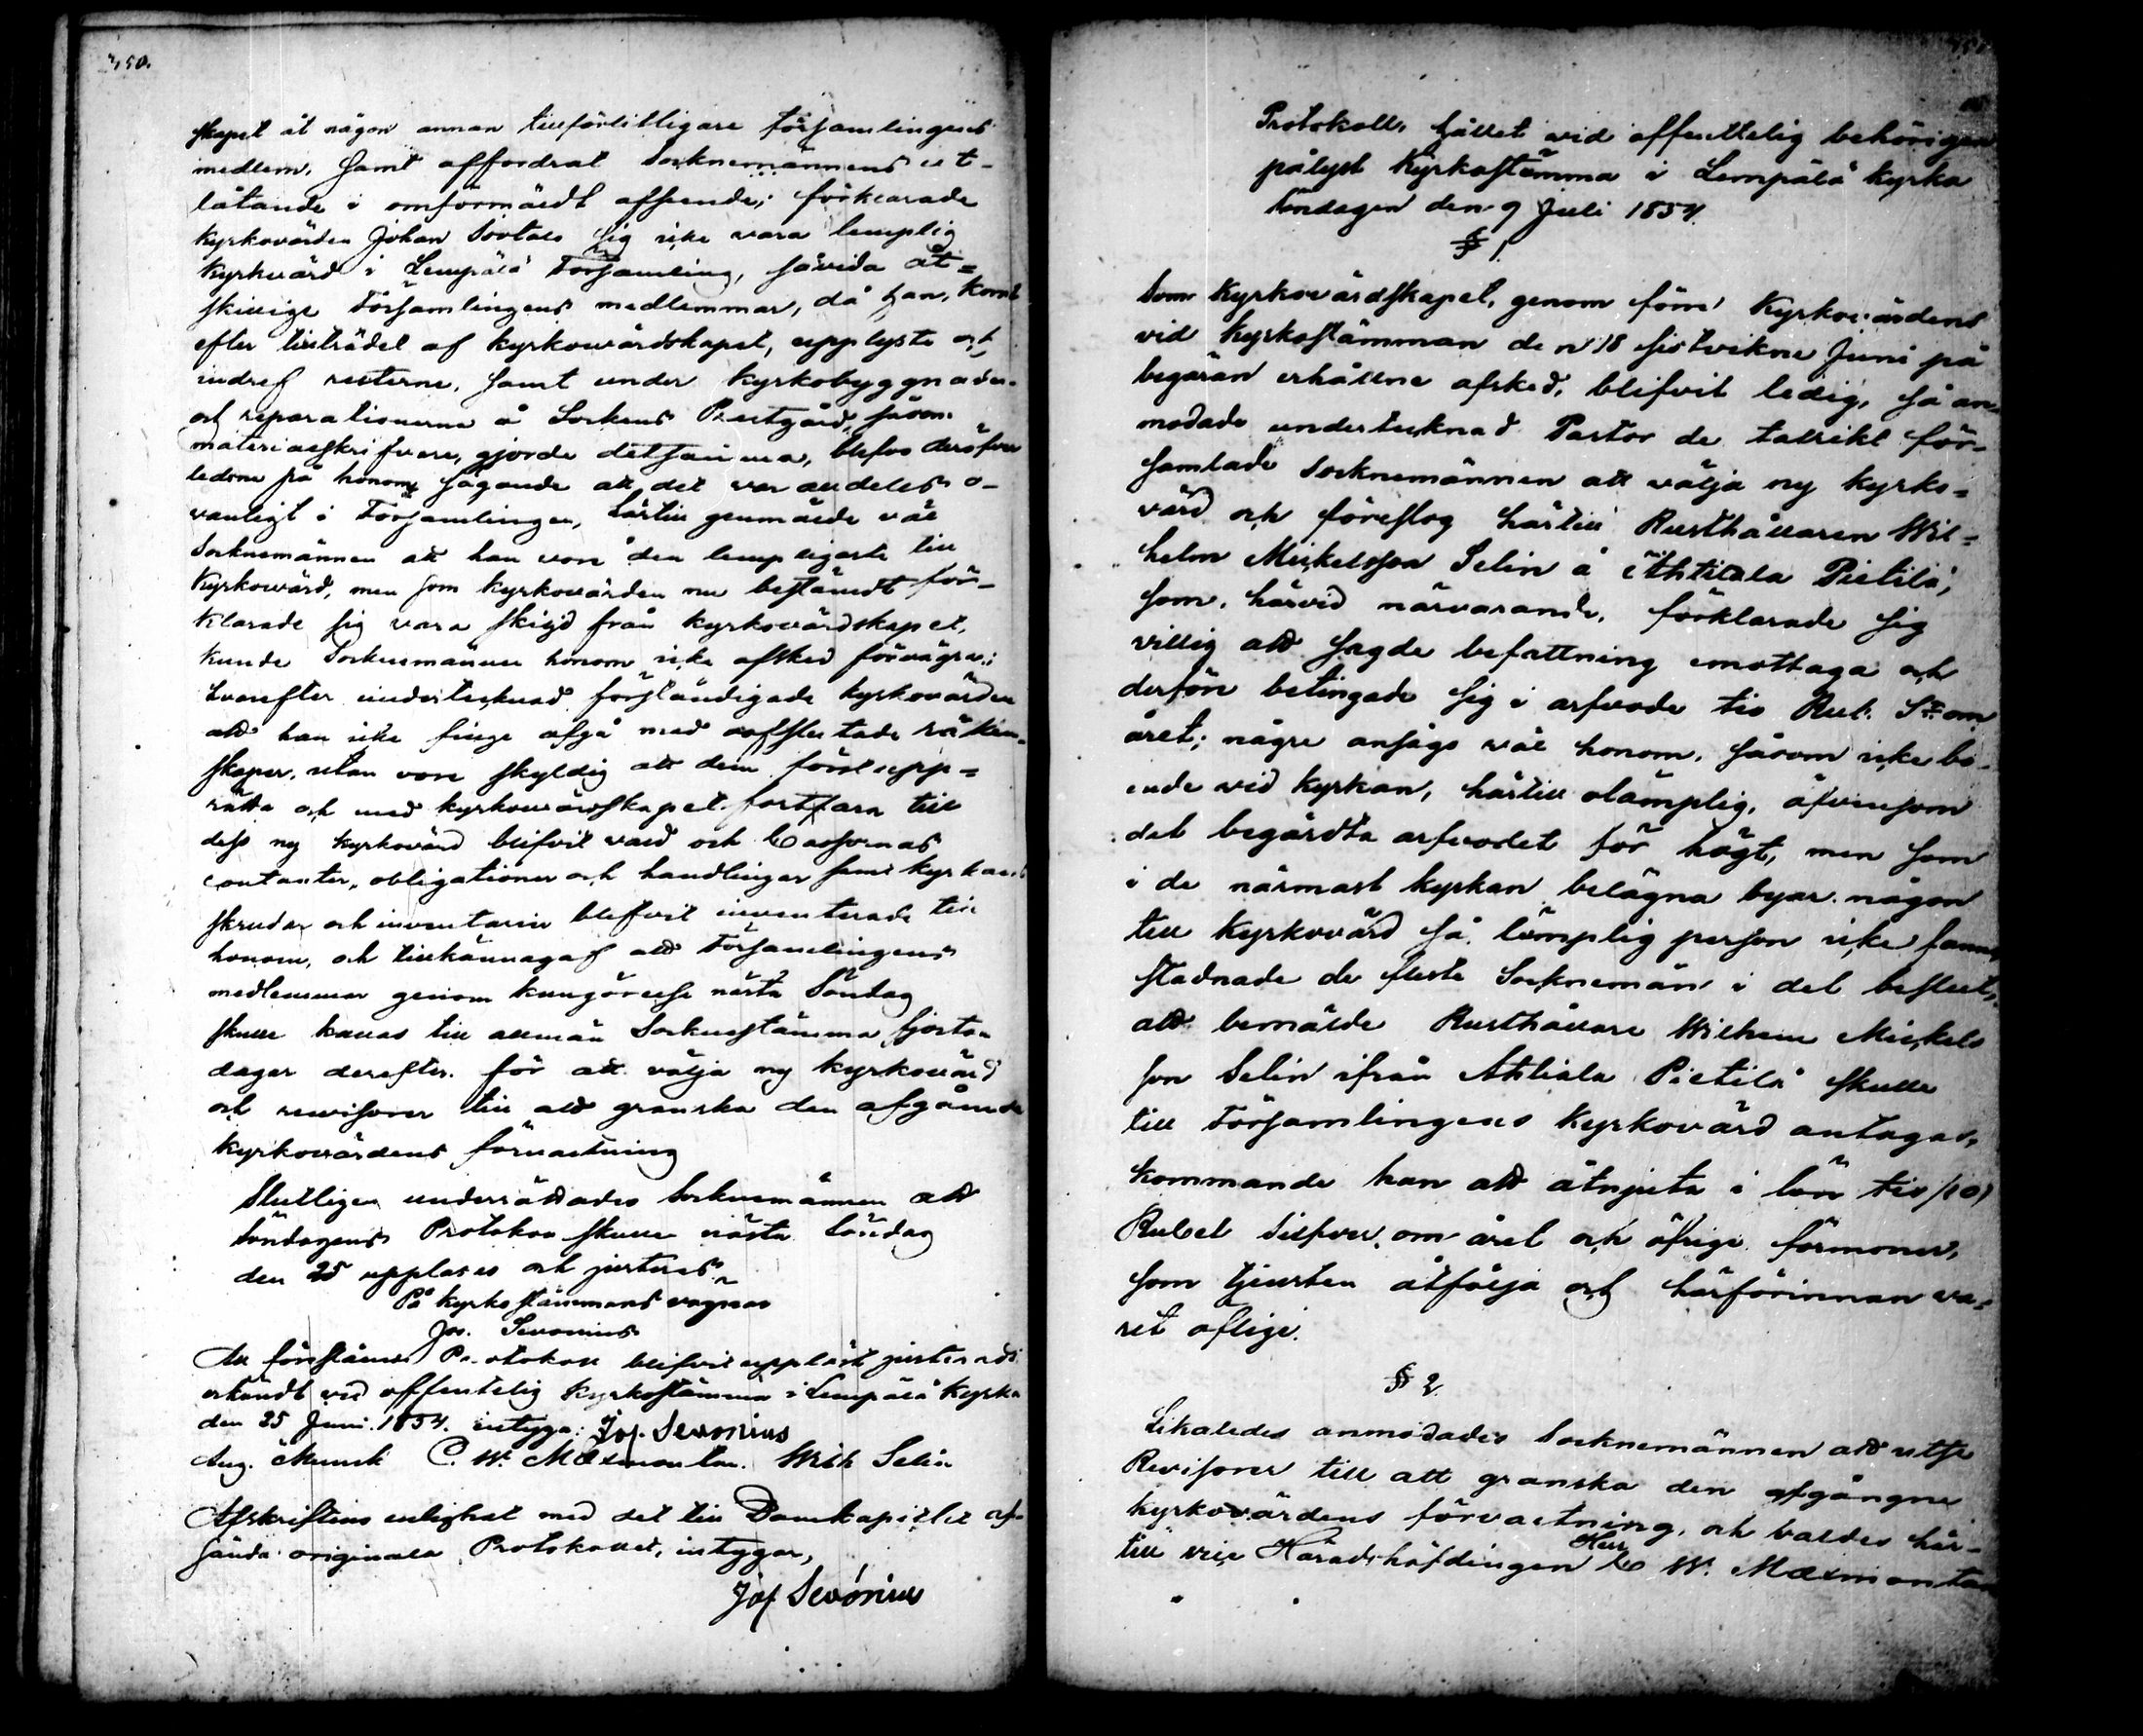 350.
skapet åt någon annan tillförlitligare församlingens
medlem, samt affordrat Socknemännens ut-
låtande i omförmäldt afseende; förklarade
Kyrkovärden Johan Sootala sig icke vara lemplig
Kyrkvärd i Lempälä Församling, såvida åt=
skillige Församlingens medlemmar, då han, kort
efter tillträdet af kyrkowärdskapet, upplyste och
indref resterne, samt under Kyrkobyggnaden
och reparationerne å Sockens Prestgård, såsom
materialskrifvare, gjorde detsamma, blefvo deröfver
ledsne på honom sägande att det var alldeles o-
vanligt i Församlingen, härtill genmälde väl
Socknemännen att han vore den lempligaste till
Kyrkowärd, men som kyrkovärden nu bestämdt för-
klarade sig vara skiljd från kyrkovärdskapet,
kunde Socknemännen honom icke afsked förvägra;
hvarefter undertecknad förständigade kyrkovärden
att han icke finge afgå med oafslutade räken-
skaper, utan vore skyldig att dem först upp=
rätta och med kyrkowärdskapet fortfara till
dess ny kyrkovärd blifvit vald och Cassornas
contanter, obligationer och handlingar samt kyrkans
skrudar och inventarier blifvit inventerade till
honom, och tillkännagaf att Församlingens
medlemmar genom kungörelse nästa Söndag
skulle kallas till allmän Sockenstämma fjorton
dagar derefter för att välja ny kyrkovärd
och revisorer till att granska den afgående
kyrkovärdens förvaltning
Slutligen underrättades Socknemännen att
Söndagens Protokoll skulle nästa Söndag
den 25 upplases och justeras.
På kyrkostämmans vägnar
Jos. Sevonius
Att förestående Protokoll blifvit uppläst justeradt
erkändt vid offentelig Kyrkostämma i Lempälä Kyrka
den 25 Juni 1854. intyga: Jos. Sevonius
Aug. Munck C. W. Mæxmontan. Wilh Selin
Afskriftens enlighet med det till Domkapitlet af-
sända originala Protokollet, intygar,
Jos Sevónius
Protokoll, hållet vid offenttelig behörigen
pålyst Kyrkostämma i Lempälä kyrka
Söndagen den 9 Juli 1854.
§ 1.
Som Kyrkovärdskapet, genom förre Kyrkovärdens
vid kyrkostämman den 18 sistvikne Juni på
begäran erhållne afsked, blifvit ledig, så an-
modade undertecknad Pastor de talrikt för-
samlade Socknemännen att välja ny kyrko=
värd och föreslog härtill Rusthållaren Wil=
helm Mickelsson Selin å Ahtiala Pietilä,
som, härvid närvarande, förklarade sig
villig att sagde befattning emottaga och
derför betingade sig i arfvode tio Rub. Sr om
året; någre ansågo väl honom, såsom icke bo-
ende vid kyrkan, härtill olämplig, äfvensom
det begärdta arfvodet för högt, men som
i de närmast kyrkan belägna byar någon
till Kyrkovärd så lämplig person icke fanns,
stadnade de fleste Socknemän i det beslut,
att bemälde Rusthållare Wilhelm Mickels
son Selin ifrån Ahtiala Pietilä skulle
till Församlingens Kyrkovärd antagas,
kommande han att åtnjuta i lön tio /10/
Rubel Silfver om året och öfrige förmoner,
som tjensten åtfölja och härförinnan va=
rit oflige.
§ 2.
Likaledes anmodades Socknemännen att utse
Revisorer till att granska den afgångne
kyrkovärdens förvaltning, och valdes här-
till vice Häradshöfdingen Herr C W. Mæxmontan